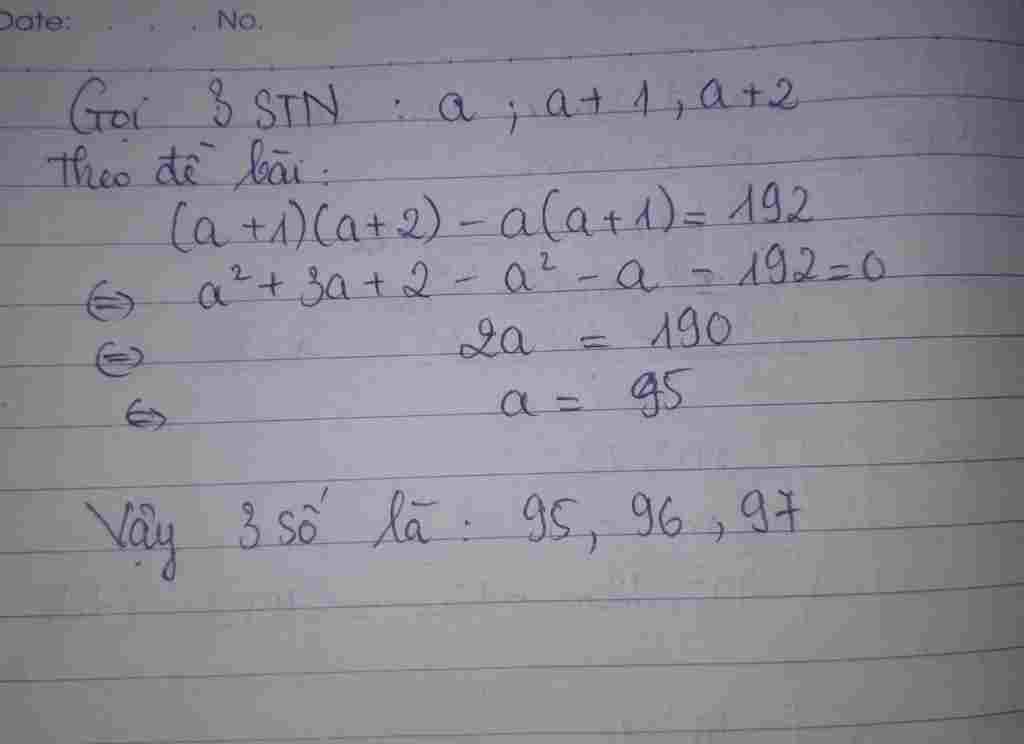 Date: . . . No.
Gọi 3 STN : a ; a + 1 , a + 2
Theo đề bài :
(a + 1)(a + 2) - a(a + 1) = 192
⇔ a² + 3a + 2 - a² - a - 192 = 0
⇔ 2a = 190
⇔ a = 95
Vậy 3 số là : 95, 96, 97